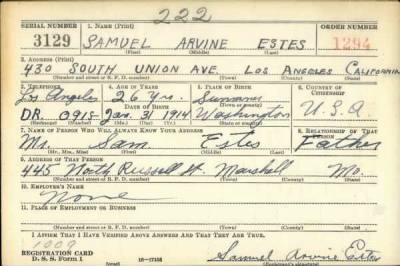 222
SERIAL NUMBER 1. NAME (Print) ORDER NUMBER
3129 SAMUEL ARVINE ESTES 1294
(First) (Middle) (Last)
2. ADDRESS (Print)
430 SOUTH UNION AVE. LOS ANGELES CALIFORNIA
(Number and street or R. F. D. number) (Town) (County) (State)
3. TELEPHONE 4. AGE IN YEARS 5. PLACE OF BIRTH 6. COUNTRY OF CITIZENSHIP
Los Angeles 26 yrs. Sumner
DATE OF BIRTH (Town or county)
DR. 0915 Jan. 31 1914 Washington U.S.A.
(Exchange) (Number) (Mo.) (Day) (Yr.) (State or country)
7. NAME OF PERSON WHO WILL ALWAYS KNOW YOUR ADDRESS 8. RELATIONSHIP OF THAT PERSON
Mr. Sam Estes Father
(Mr., Mrs., Miss) (First) (Middle) (Last)
9. ADDRESS OF THAT PERSON
445 North Russell St. Marshall Mo.
(Number and street or R. F. D. number) (Town) (County) (State)
10. EMPLOYER'S NAME
None
11. PLACE OF EMPLOYMENT OR BUSINESS
(Number and street or R. F. D. number) (Town) (County) (State)
I AFFIRM THAT I HAVE VERIFIED ABOVE ANSWERS AND THAT THEY ARE TRUE.
1009
REGISTRATION CARD
D. S. S. Form 1 16-17105 Samuel Arvine Estes
(Registrant's signature)